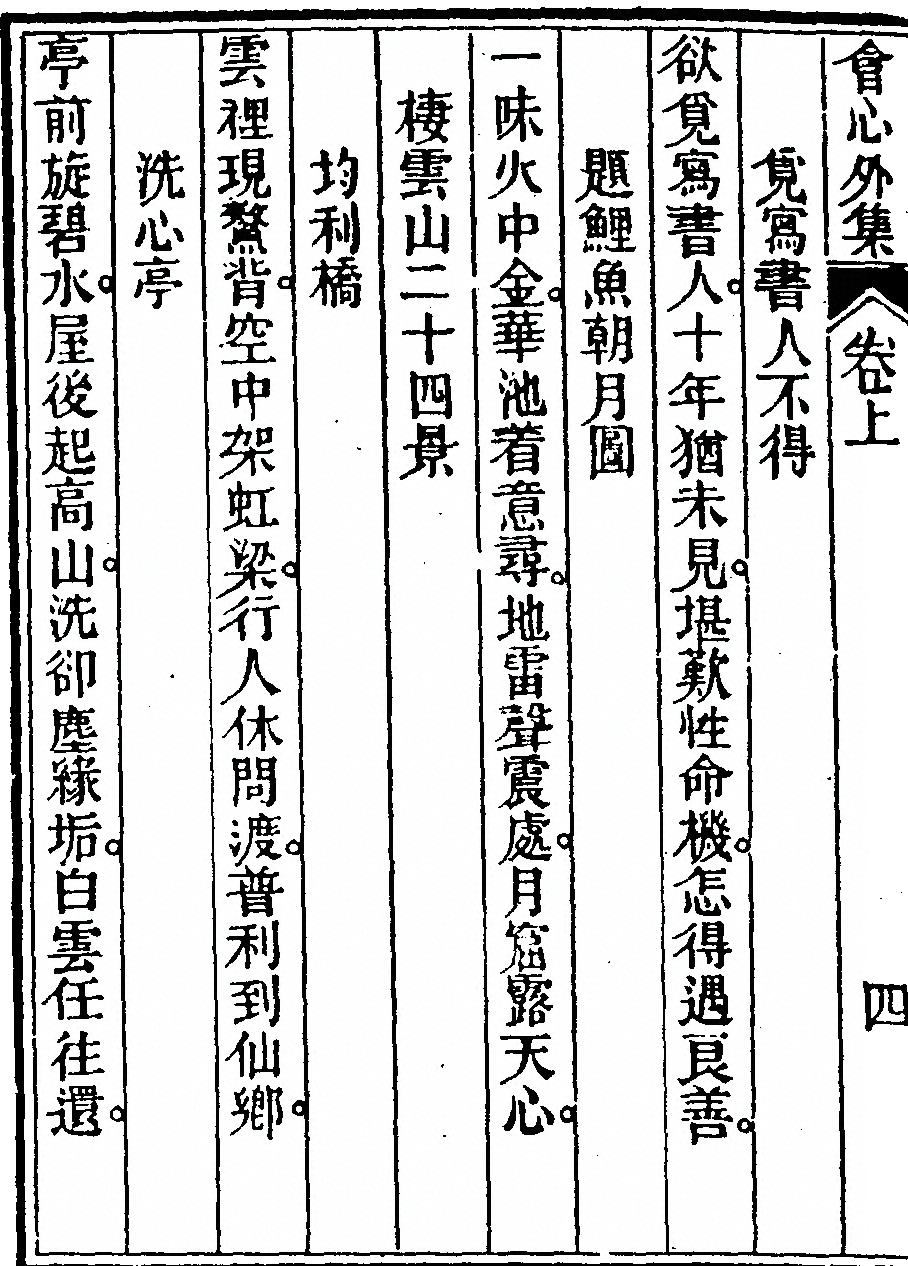 會心外集 卷上 四
覓寫書人不得
欲覓寫書人。十年猶未見。堪歎性命機。怎得遇良善。
題鯉魚朝月圖
一味火中金。華池着意尋。地雷聲震處。月窟露天心。
棲雲山二十四景
均利橋
雲裡現鰲背。空中架虹梁。行人休問渡。普利到仙鄉。
洗心亭
亭前旋碧水。屋後起高山。洗卻塵緣垢。白雲任往還。